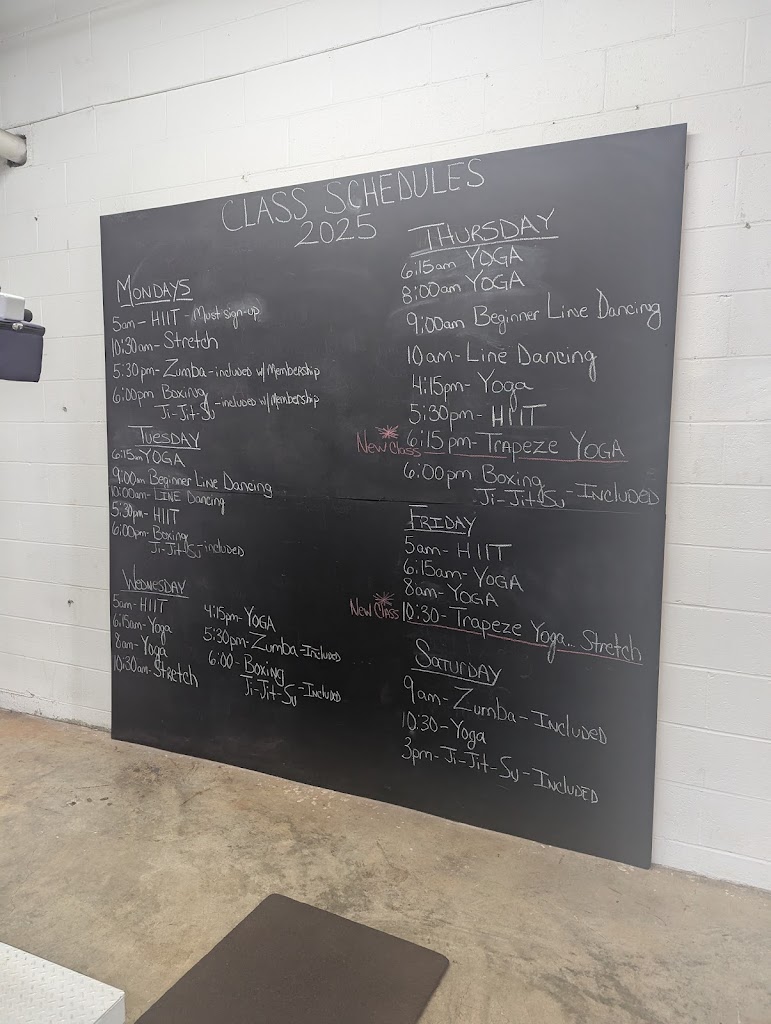 CLASS SCHEDULES
2025
MONDAYS
5am - HIIT - Must sign-up
10:30am - Stretch
5:30pm - Zumba - included w/ Membership
6:00pm Boxing
Ji-Jit-Su - included w/ Membership
TUESDAY
6:15am YOGA
9:00am Beginner Line Dancing
10:00am - LINE Dancing
5:30pm - HIIT
6:00pm - Boxing
Ji-Jit-Su - included
WEDNESDAY
5am - HIIT
6:15am - Yoga
8am - Yoga
10:30am - Stretch
4:15pm - YOGA
5:30pm - Zumba - Included
6:00 - Boxing
Ji-Jit-Su - Included
THURSDAY
6:15am YOGA
8:00am YOGA
9:00am Beginner Line Dancing
10am - Line Dancing
4:15pm - Yoga
5:30pm - HIIT
New Class 6:15pm - Trapeze YOGA
6:00pm Boxing
Ji-Jit-Su - INCLUDED
FRIDAY
5am - HIIT
6:15am - YOGA
8am - YOGA
New Class 10:30 - Trapeze Yoga.. Stretch
SATURDAY
9am - Zumba - INCLUDED
10:30 - Yoga
3pm - Ji-Jit-Su - INCLUDED